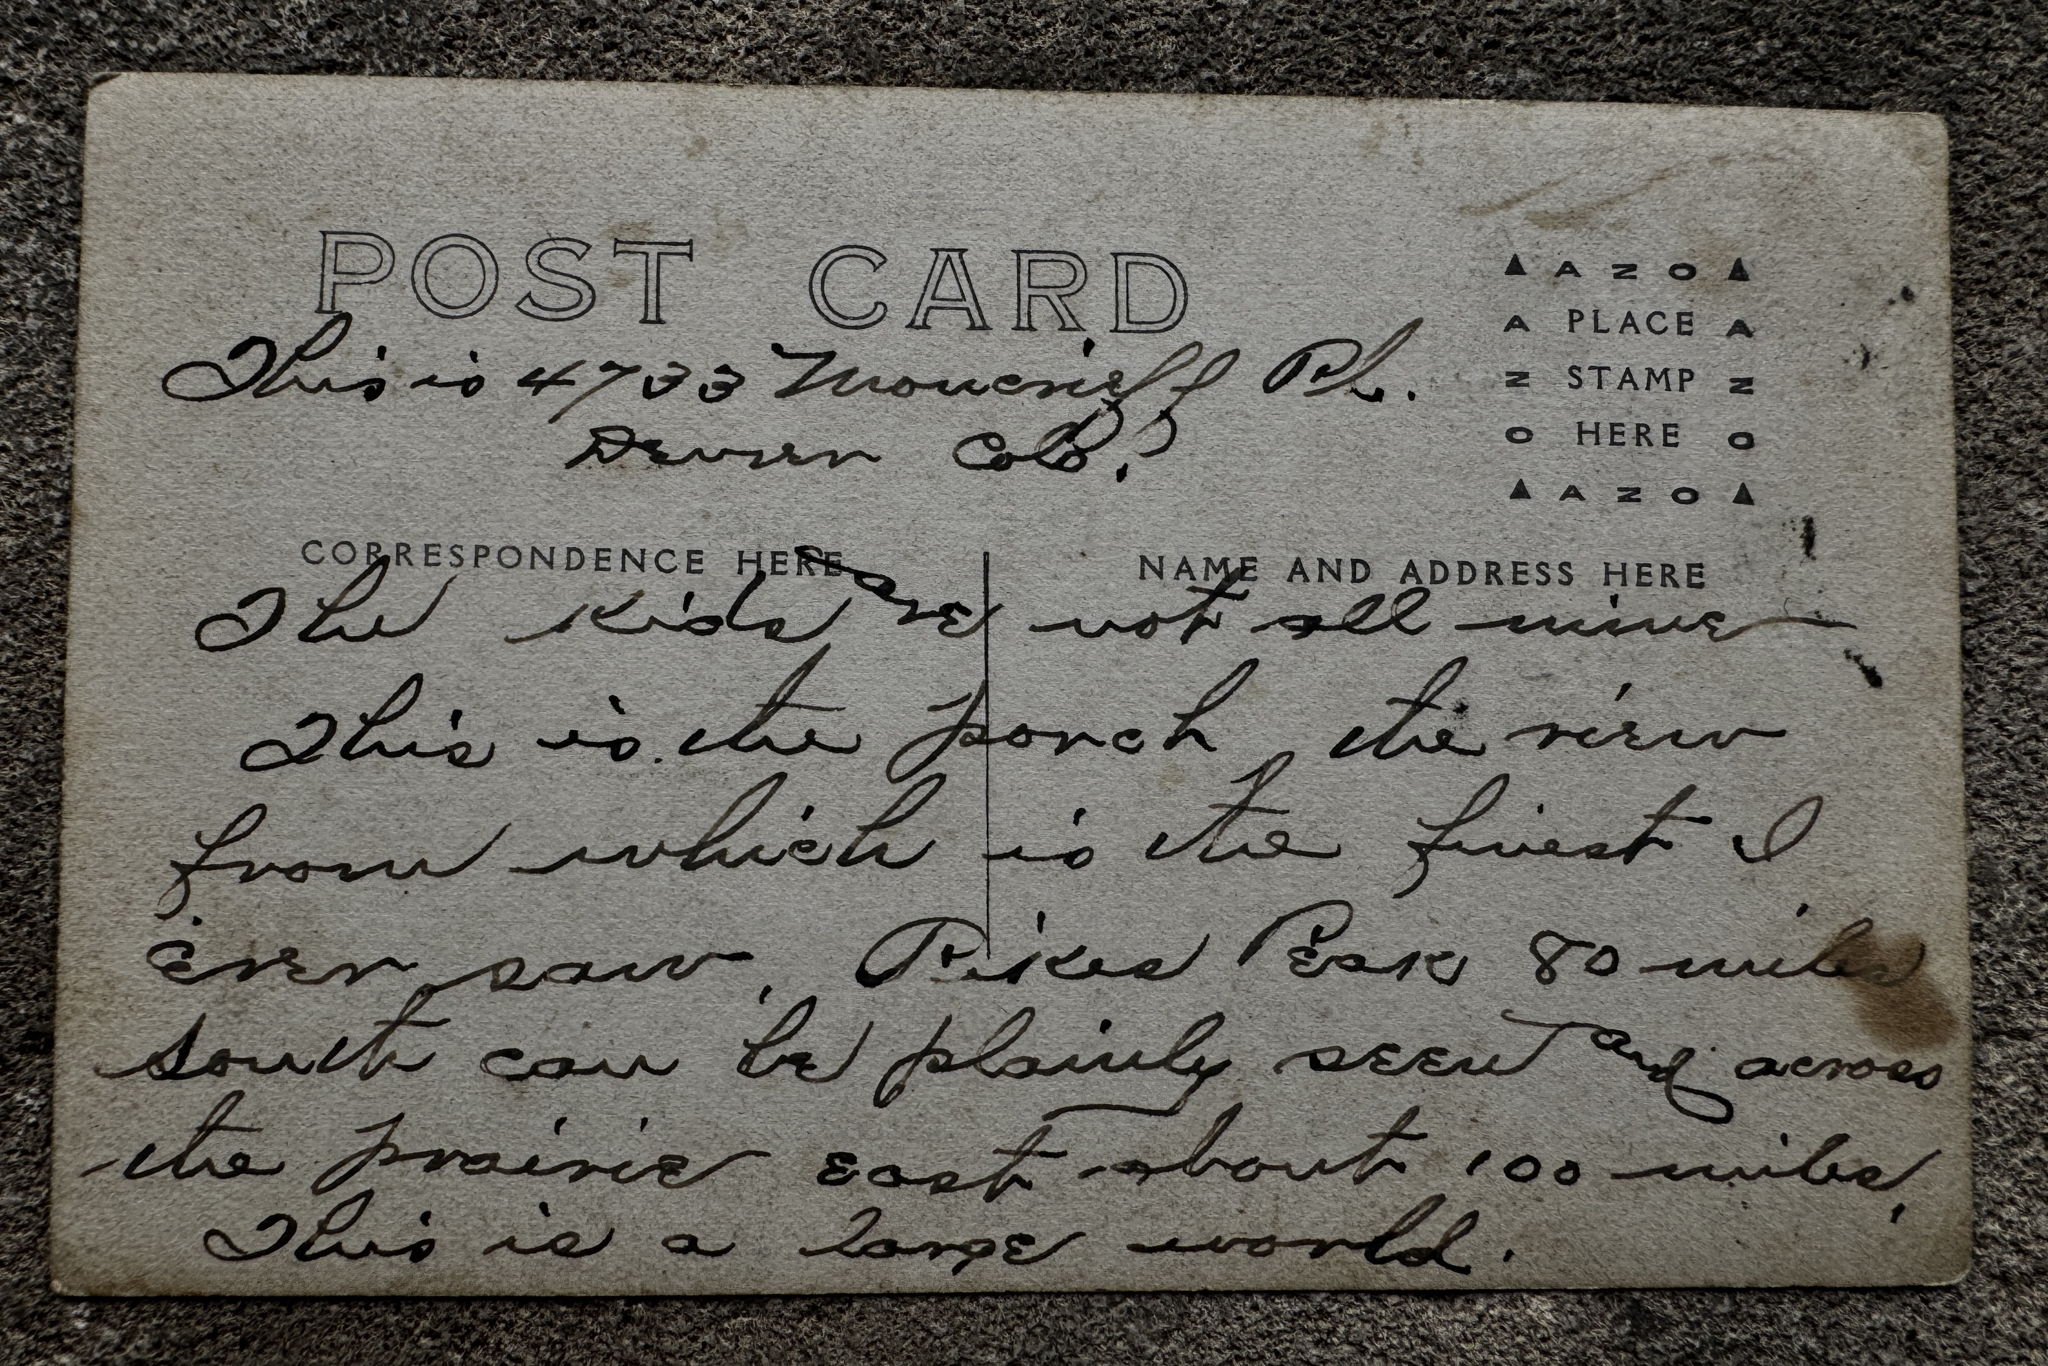 POST CARD
This is 4733 Moncrieff Pl.
Denver Colo.
▲ A Z O ▲
A PLACE A
Z STAMP Z
O HERE O
▲ A Z O ▲
CORRESPONDENCE HERE
NAME AND ADDRESS HERE
The kids are not all mine
This is the porch the view
from which is the finest I
ever saw, Pikes Peak 80 miles
south can be plainly seen and across
the prairie east about 100 miles,
This is a large world.